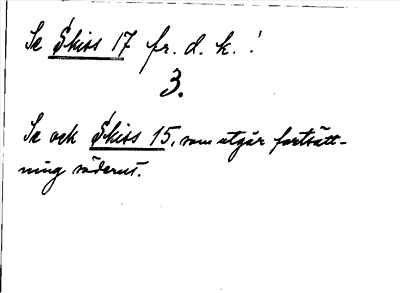 Se Skiss 17 fr. d. k. !
3.
Se och Skiss 15, som utgår fortsätt-
ning söderut.